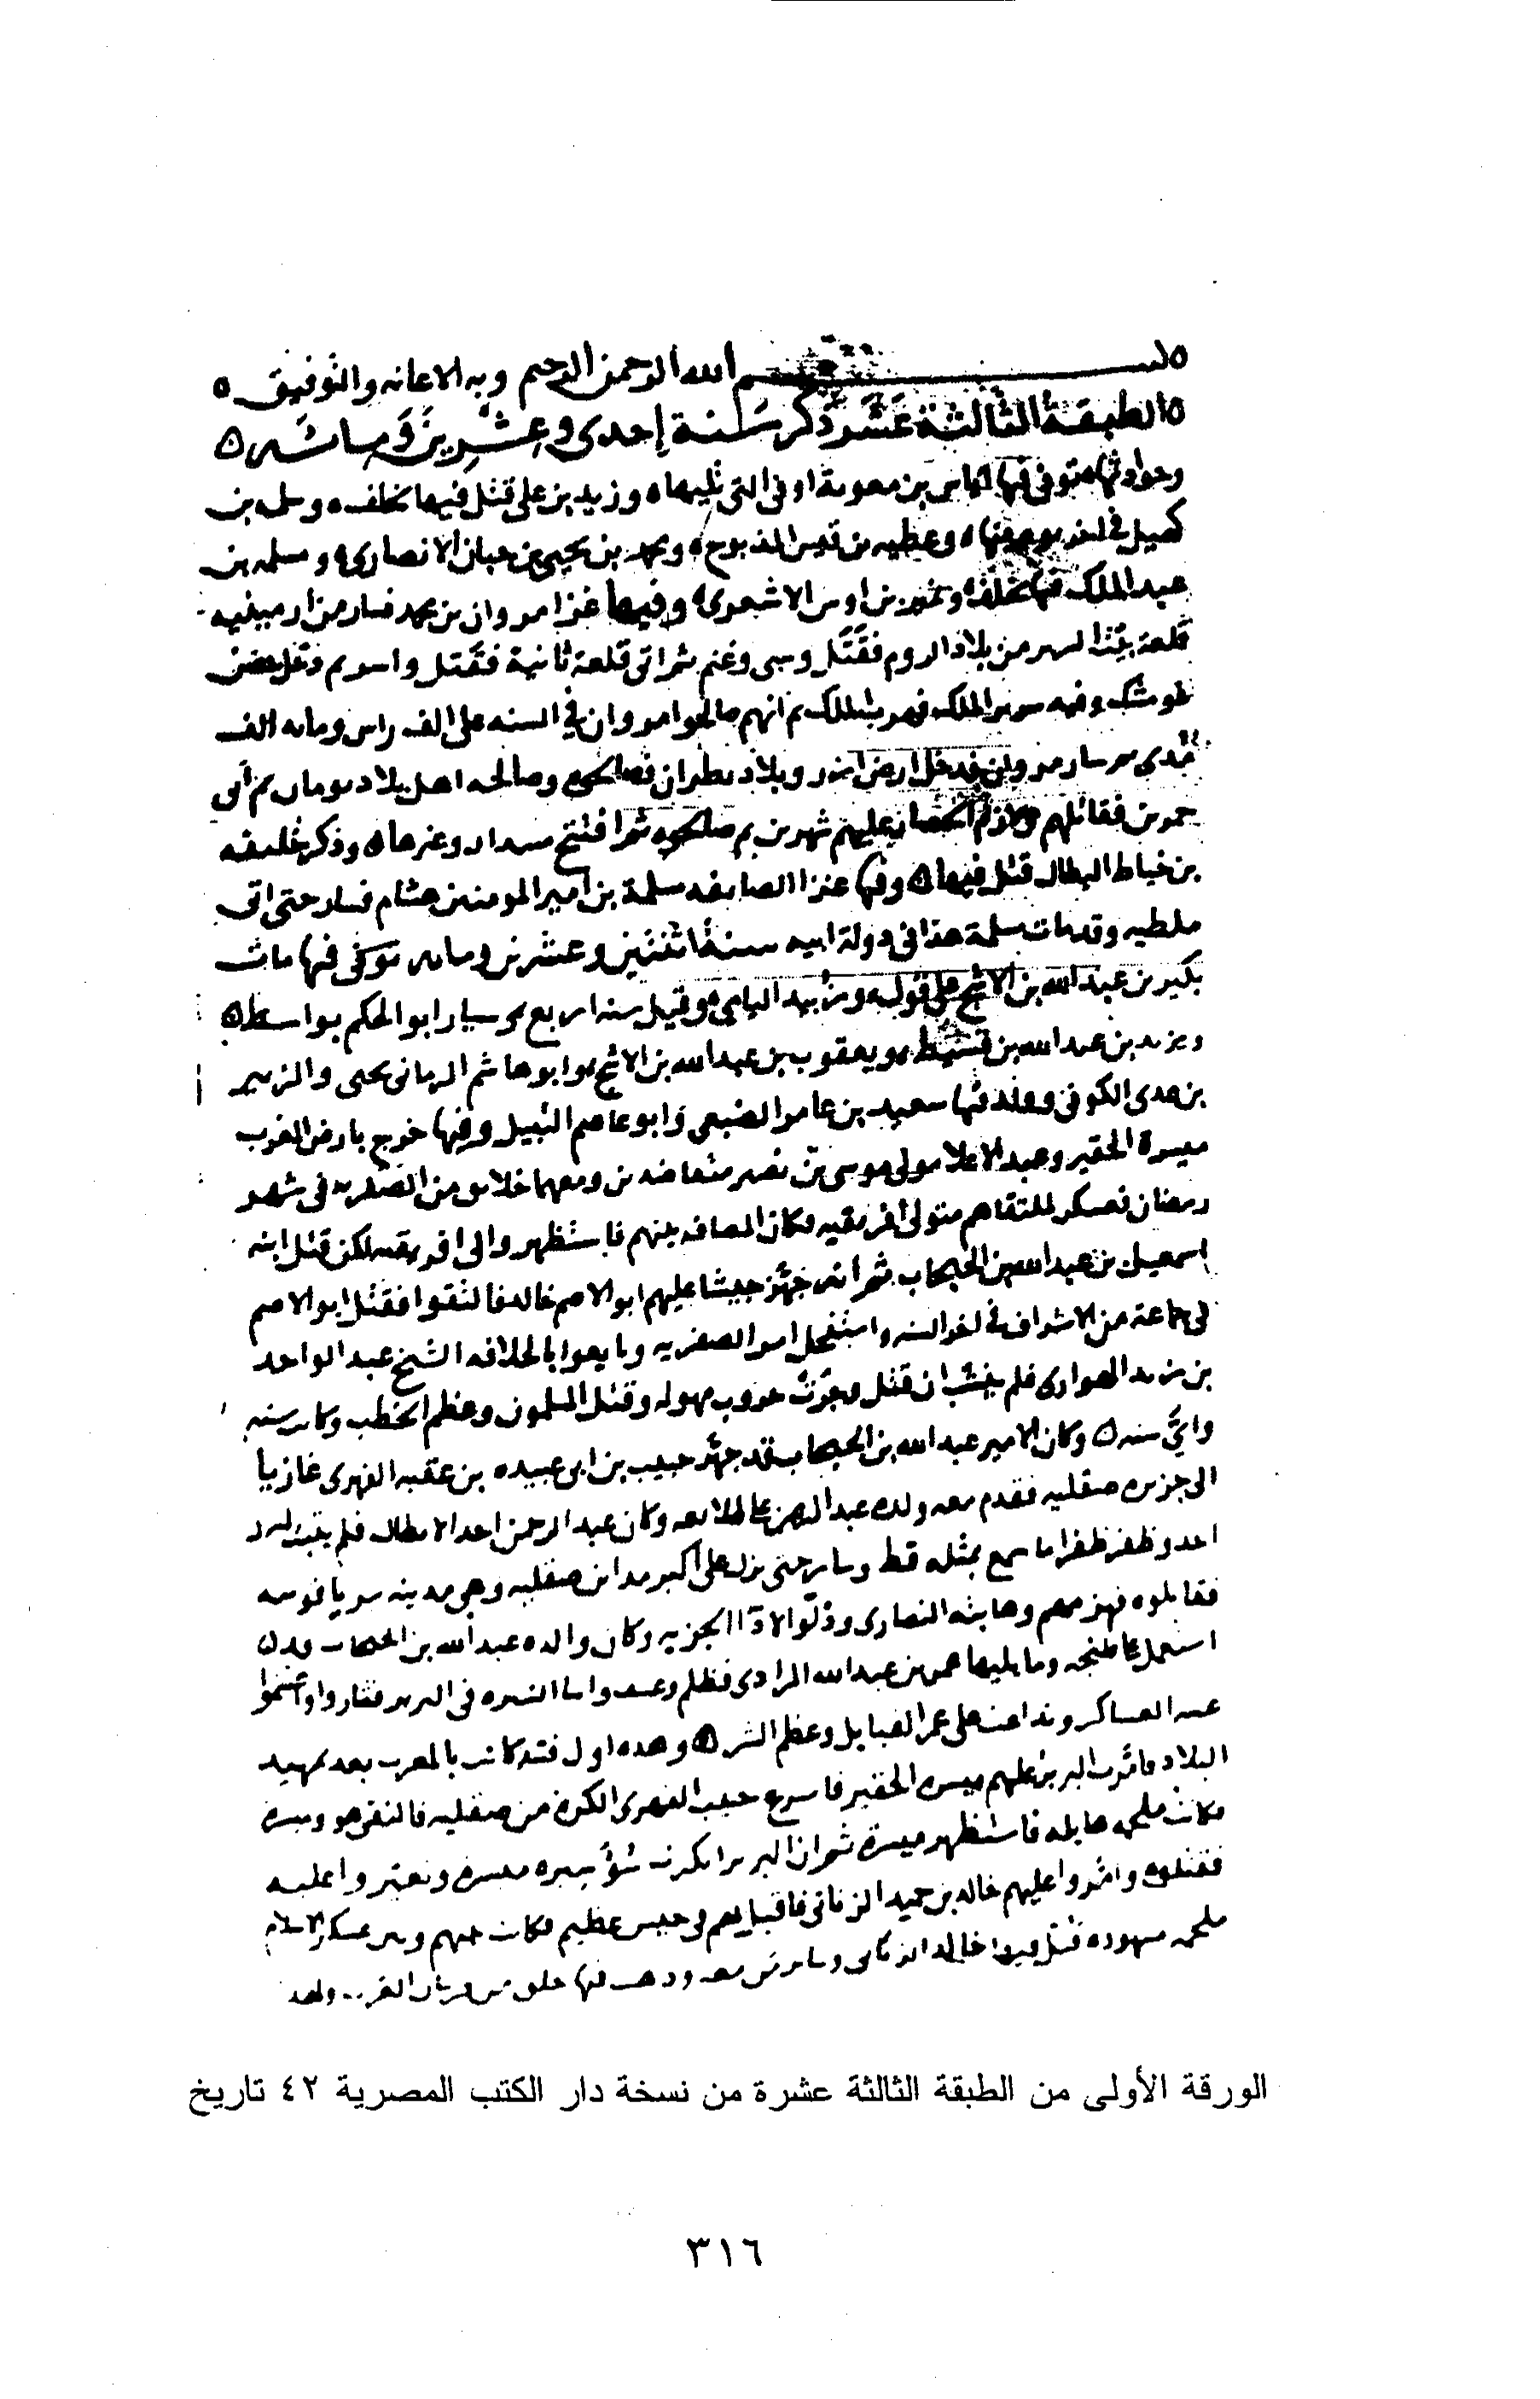 بسم الله الرحمن الرحيم وبه الاعانه والتوفيق
الطبقة الثالثة عشر ذكر سنة إحدى وعشرين ومائه
وحوادثها توفى فيها اياس بن معوية او فى التى تليها وزيد بن على قتل فيها بخلف وسلمه بن
كهيل فى اخر يوم منها وعطيه بن قيس المذبوح ومحمد بن يحيى بن حبان الانصارى ومسلمه بن
عبد الملك فيها بخلف ونمير بن اوس الاشعرى وفيها غزا مروان بن محمد فسار من ارمينيه
قلعة بيت السرير من بلاد الروم فقتل وسبى وغنم ثم اتى قلعة ثانية فقتل واسر ثم دخل حصن
غومشك وفيه سرير الملك فهرب الملك ثم انهم صالحوا مروان فى السنه على الف راس ومايه الف
مدى ثم سار مروان فدخل ارض ازر وبلاد بطران فصالحوه وصالحه اهل بلاد تومان ثم أتى
حمزين فقاتلهم ولازم الحصار عليهم شهرين ثم صالحوه ثم افتتح مسدار وغيرها وذكر خليفه
بن خياط البطال قتل فيها وفيها غزا الصايفه مسلمة بن امير المومنين هشام فسار حتى اتى
ملطيه وقد مات مسلمة هذا فى دولة ابيه سنة اثنتين وعشرين ومايه توفى فيها مات
بكير بن عبد الله بن الاشج على قول وزبيد اليامى وقيل سنه اربع وسيار ابو الحكم بواسط
ويزيد بن عبد الله بن قسيط ويعقوب بن عبد الله بن الاشج وابو هاشم الرمانى يحيى والزبير
بن عدى الكوفى وولد فيها سعيد بن عامر الضبعى وابو عاصم النبيل وفيها خرج بارض المغرب
ميسرة الحقير وعبد الاعلا مولى موسى بن نصير متعاضدين ومعهما خلايق من الصفريه فى شهر
رمضان فعسكر لملتقاهم متولى افريقيه فكان المصاف بينهم فاستظهر والى افريقيه لكن قتل ابنه
اسمعيل بن عبد الله بن الحبحاب ثم انه جهز جيشا عليهم ابو الاصم خالد فالتقوا فقتل ابو الاصم
فى جماعة من الاشراف فى اخر السنه واستفحل امر الصفريه وبايعوا بالخلافه الشيخ عبد الواحد
بن يزيد الهوارى فلم ينشب ان قتل وجرت حروب مهوله وقتل المسلمون وعظم الخطب وكانت سنه
واىّ سنه وكان الامير عبد الله بن الحبحاب قد جهز حبيب بن ابى عبيده بن عقبه الفهرى غازيا
الى جزيره صقليه فقدم معه ولده عبد الرحمن على طلائعه وكان عبد الرحمن احد الابطال فلم يثبت له
احد وظفر ظفرا ما سمع بمثله قط وسار حتى نزل على اكبر مداين صقليه وهى مدينه سرياقوسه
فقابلوه فهزمهم وهابته النصارى وذلوا لادآ الجزيه وكان والده عبد الله بن الحبحاب قد
استعمل على طنجه وما يليها عمر بن عبد الله المرادى فظلم وعسف واسا السيره فى البربر فثاروا واغتنموا
غيبه العساكر وتداعت على عمر القبايل وعظم الشر وهذه اول فتنه كانت بالمغرب بعد تمهيد
البلاد فامّرت البربر عليهم ميسره الحقير فاسرع حبيب الفهرى الكره من صقليه فالتقى هو وميسره
فكانت ملحمه هايله فاستظهر ميسرة ثم ان البربر انكرت سوٓ سيره ميسره وتغيروا عليه
فقتلوه وامّروا عليهم خالد بن حميد الزناتى فاقبل بهم فى جيش عظيم فكانت بينهم وبين عسكر الاسلام
ملحمه مشهوده قتل فيها خالد الزناتى وساير من معه وذهب فيها خلق من فرسان العرب
الورقة الأولى من الطبقة الثالثة عشرة من نسخة دار الكتب المصرية ٤٢ تاريخ
٣١٦